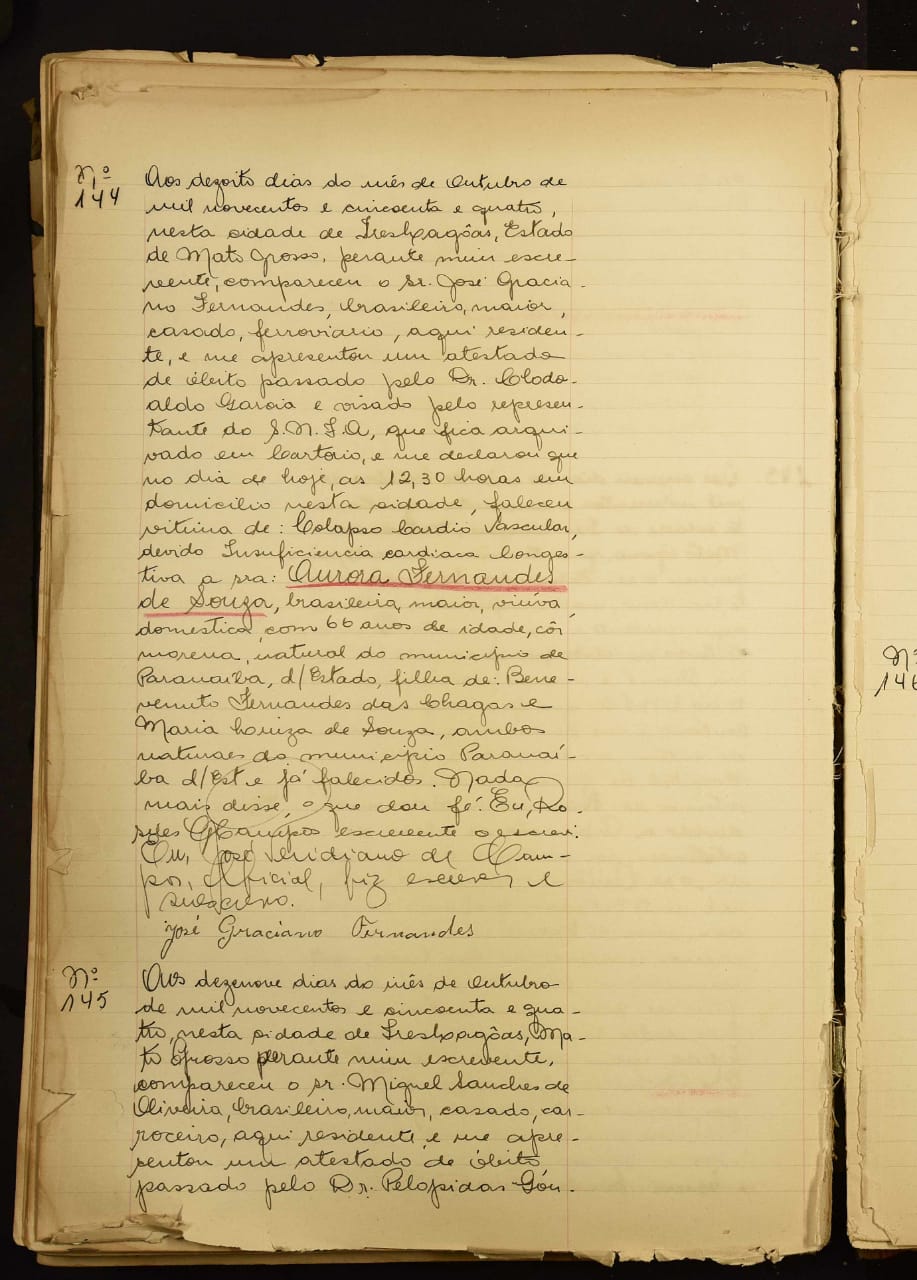 Nº
144
Aos dezoito dias do mês de Outubro de
mil novecentos e cincoenta e quatro,
nesta cidade de Tres Lagôas, Estado
de Mato Grosso, perante mim escre-
vente, compareceu o sr. José Gracia-
no Fernandes, brasileiro, maior,
casado, ferroviario, aqui residen-
te, e me apresentou um atestado
de óbito passado pelo Dr. Clodo-
aldo Garcia e visado pelo represen-
tante do S.N.F.A, que fica arqui-
vado em Cartório, e me declarou que
no dia de hoje, as 12,30 horas em
domicilio nesta cidade, faleceu
vitima de: Colapso Cardio Vascular,
devido Insuficiencia cardiaca Conges-
tiva a sra: Aurora Fernandes
de Souza, brasileira, maior, viúva,
domestica, com 66 anos de idade, côr
morena, natural do municipio de
Paranaiba, d/Estado, filha de: Bene-
venuto Fernandes das Chagas e
Maria Luiza de Souza, ambos
naturaes do municipio Paranaí-
ba d/Est e já falecidos. Nada
mais disse, o que dou fé. Eu,
Campos escrevente o escrevi.
Eu, José Viridiano de Cam-
pos, Oficial, fiz escrever e
subscrevo.
José Graciano Fernandes
Nº
145
Aos dezenove dias do mês de Outubro
de mil novecentos e cincoenta e qua-
tro, nesta cidade de Tres Lagôas, Ma-
to Grosso perante mim escrevente,
compareceu o sr. Miguel Sanches de
Oliveira, brasileiro, maior, casado, car-
roceiro, aqui residente, e me apre-
sentou um atestado de óbito
passado pelo Dr. Pelopidas Gou-
Nº
146